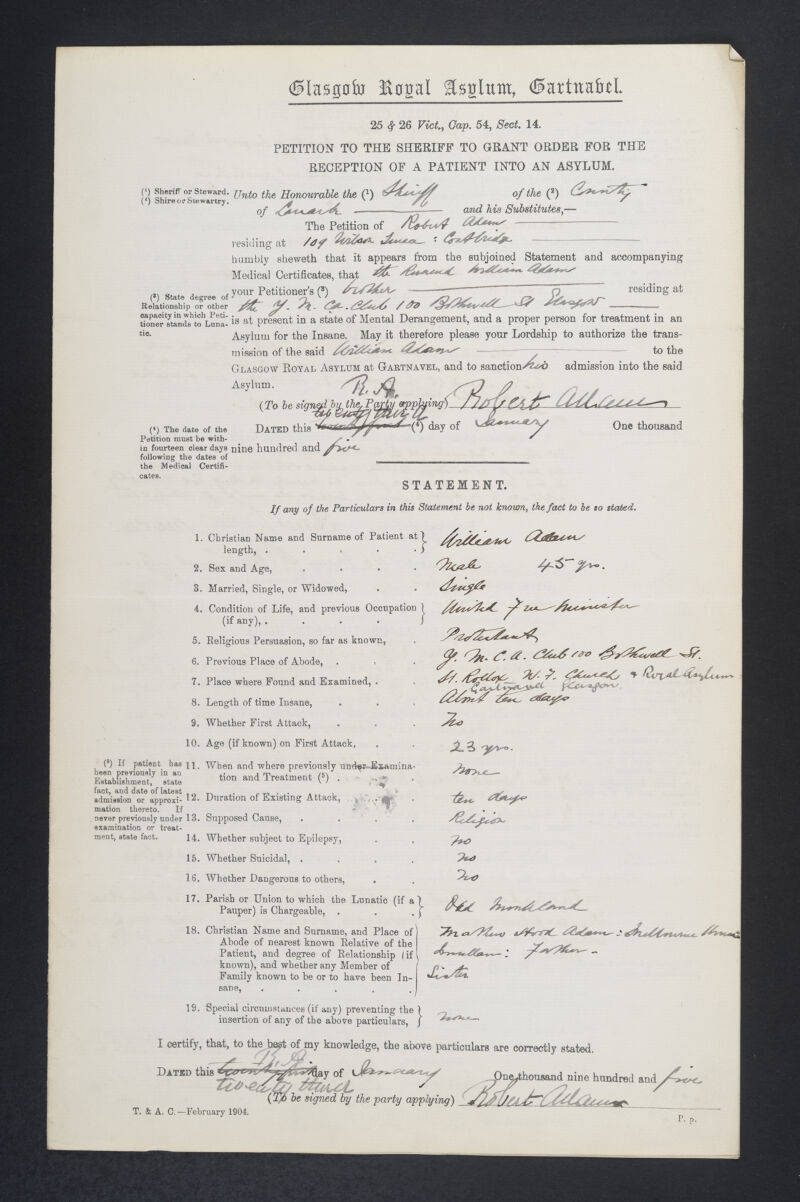 Glasgow Royal Asylum, Gartnavel.
25 & 26 Vict., Cap. 54, Sect. 14.
PETITION TO THE SHERIFF TO GRANT ORDER FOR THE
RECEPTION OF A PATIENT INTO AN ASYLUM.
(¹) Sheriff or Steward.
(²) Shire or Stewartry.
Unto the Honourable the (¹) Sheriff of the (²) County
of Lanark and his Substitutes,—
The Petition of Robert Adam
residing at 109 Wilson Terrace : Coatbridge
humbly sheweth that it appears from the subjoined Statement and accompanying
Medical Certificates, that the Reverend William Adam
(³) State degree of
Relationship or other
capacity in which Peti-
tioner stands to Luna-
tic.
your Petitioner's (³) brother residing at
the Y. M. C.A. Club 100 Bothwell St Glasgow
is at present in a state of Mental Derangement, and a proper person for treatment in an
Asylum for the Insane. May it therefore please your Lordship to authorize the trans-
mission of the said William Adam to the
GLASGOW ROYAL ASYLUM at GARTNAVEL, and to sanction his admission into the said
Asylum.
R. A.
(To be signed by the Party applying) Robert Adam
twenty third
(⁴) The date of the
Petition must be with-
in fourteen clear days
following the dates of
the Medical Certifi-
cates.
DATED this twenty first (⁴) day of January One thousand
nine hundred and five
STATEMENT.
If any of the Particulars in this Statement be not known, the fact to be so stated.
1. Christian Name and Surname of Patient at
length, . . . . . William Adam
2. Sex and Age, . . . . Male 45 yrs.
3. Married, Single, or Widowed, . . Single
4. Condition of Life, and previous Occupation
(if any), . . . . . United Free Minister
5. Religious Persuasion, so far as known, . Protestant
6. Previous Place of Abode, . . . Y. M. C. A. Club 100 Bothwell St.
7. Place where Found and Examined, . . St. Rollox U. F. Church & Royal Asylum
Gartnavel Glasgow
8. Length of time Insane, . . . About ten days
9. Whether First Attack, . . . No
10. Age (if known) on First Attack, . . 23 yrs.
(⁵) If patient has
been previously in an
Establishment, state
fact, and date of latest
admission or approxi-
mation thereto. If
never previously under
examination or treat-
ment, state fact.
11. When and where previously under Examina-
tion and Treatment (⁵) . . . none
12. Duration of Existing Attack, . . . ten days
13. Supposed Cause, . . . . Religion
14. Whether subject to Epilepsy, . . no
15. Whether Suicidal, . . . . no
16. Whether Dangerous to others, . . no
17. Parish or Union to which the Lunatic (if a
Pauper) is Chargeable, . . . Old Monkland
18. Christian Name and Surname, and Place of
Abode of nearest known Relative of the
Patient, and degree of Relationship (if
known), and whether any Member of
Family known to be or to have been In-
sane, . . . . .
Mathew Hood Adam : Melbourne
: Father -
Sister
19. Special circumstances (if any) preventing the
insertion of any of the above particulars, none
I certify, that, to the best of my knowledge, the above particulars are correctly stated.
R. A
DATED this twenty first day of January One thousand nine hundred and five
twenty third
(To be signed by the party applying) Robert Adam
T. & A. C.—February 1904.
P. p.